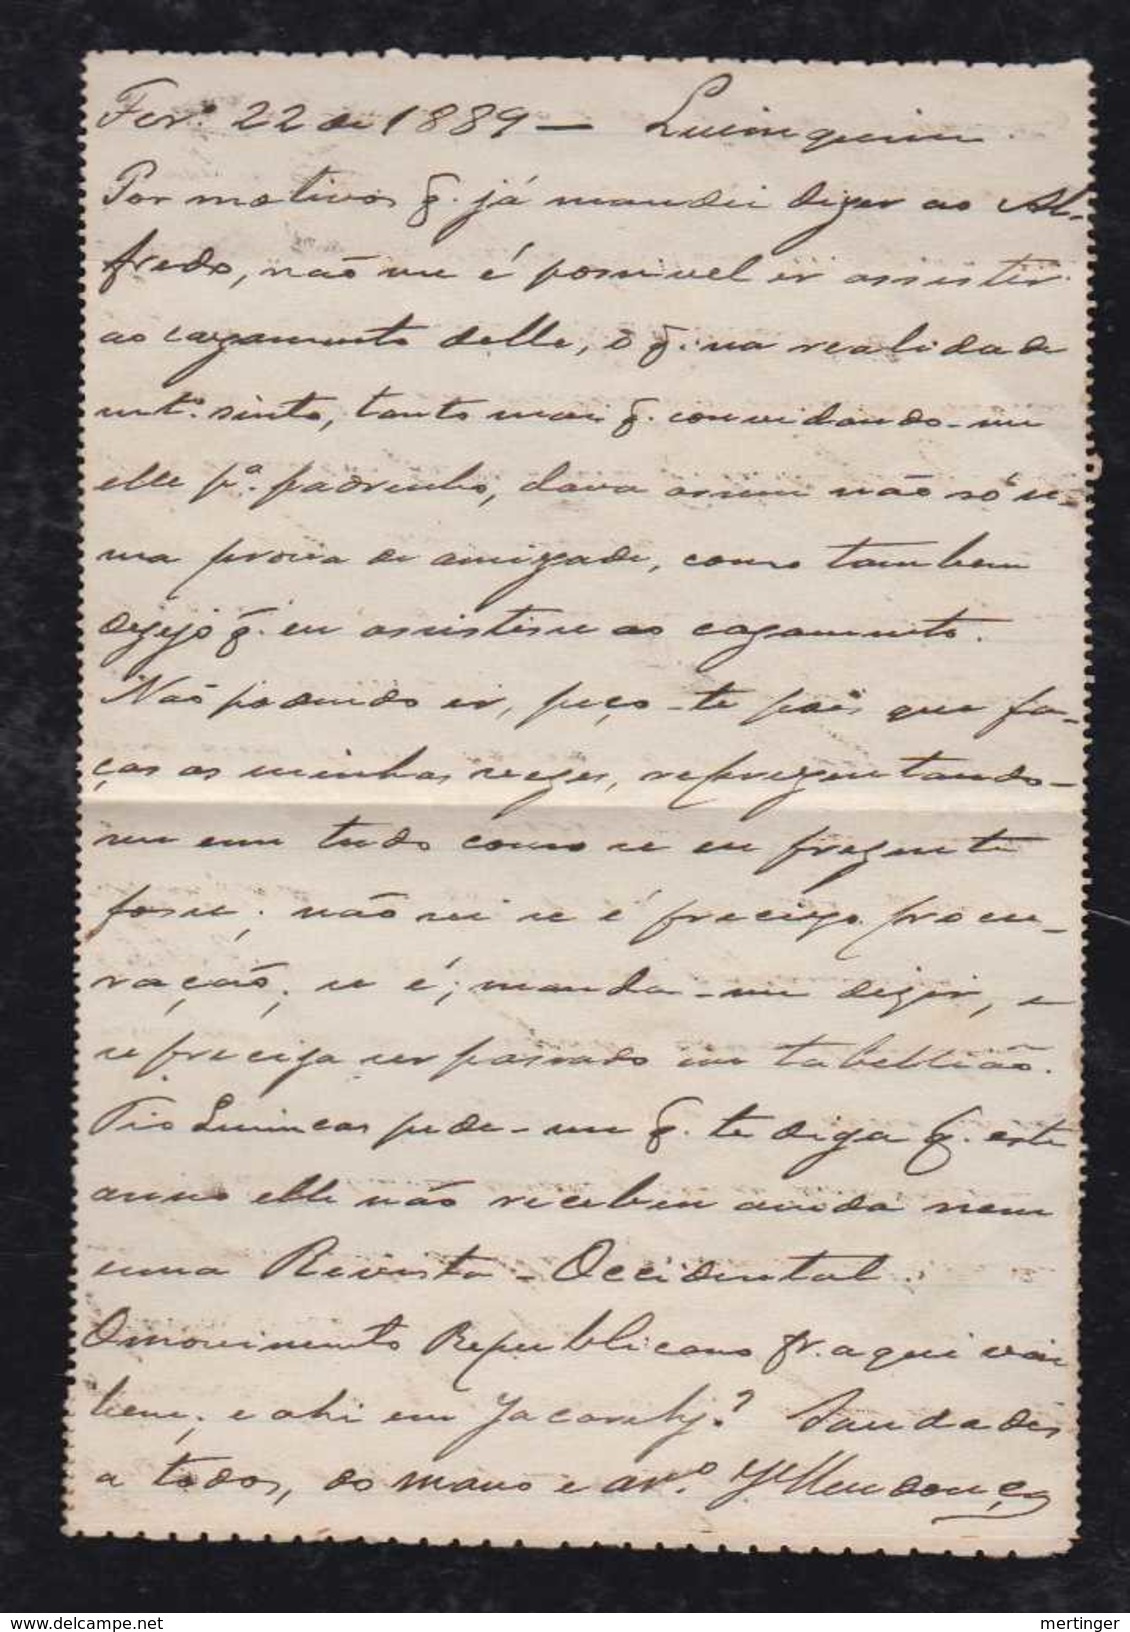 Fev.º 22 de 1889 — Quinquim.
Por motivos q. já mandei dizer ao Al-
fredo, não me é possivel ir assistir
ao cazamento delle, o q. na realidade
mt.º sinto, tanto mais q. convidando-me
elle p.ª padrinho, dava assim não só u-
ma prova de amizade, como tambem
dezejo q. eu assistisse ao cazamento.
Não podendo ir, peço-te pois que fa-
ças as minhas vezes, reprezentando-
me em tudo como se eu prezente
fosse; não sei se é precizo procu-
ração; se é, manda-me dizer, e
se preciza ser passado em tabellião.
Tio Quincas pede-me q. te diga q. este
anno elle não recebeu ainda nem
uma Revista-Occidental.
O movimento Republicano pr. aqui vai
bem; e ahi em Jacarehy? Saudades
a todos, do mano e am.º Mendonça
delcampe.net
mertinger